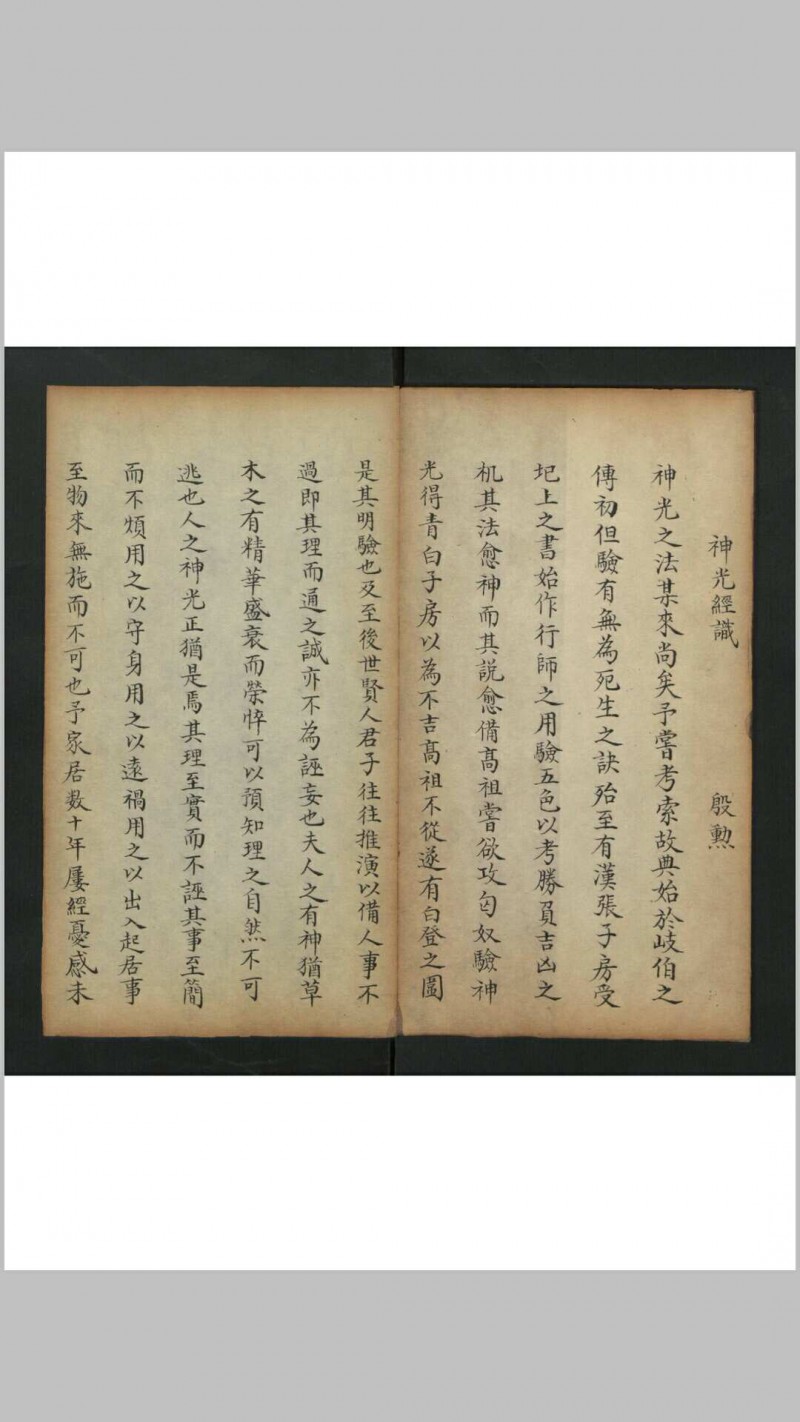 神光經識　殷勲
神光之法某來尚矣予嘗考索故典始於岐伯之
傳初但驗有無為死生之訣殆至有漢張子房受
圯上之書始作行師之用驗五色以考勝負吉凶之
机其法愈神而其說愈備髙祖嘗欲攻匈奴驗神
光得青白子房以為不吉髙祖不從遂有白登之圖
是其明驗也及至後世賢人君子往往推演以備人事不
過即其理而通之誠亦不為誣妄也夫人之有神猶草
木之有精華盛衰而榮悴可以預知理之自然不可
逃也人之神光正猶是焉其理至實而不誣其事至簡
而不煩用之以守身用之以遠禍用之以出入起居事
至物來無施而不可也予家居数十年屢經憂慼未